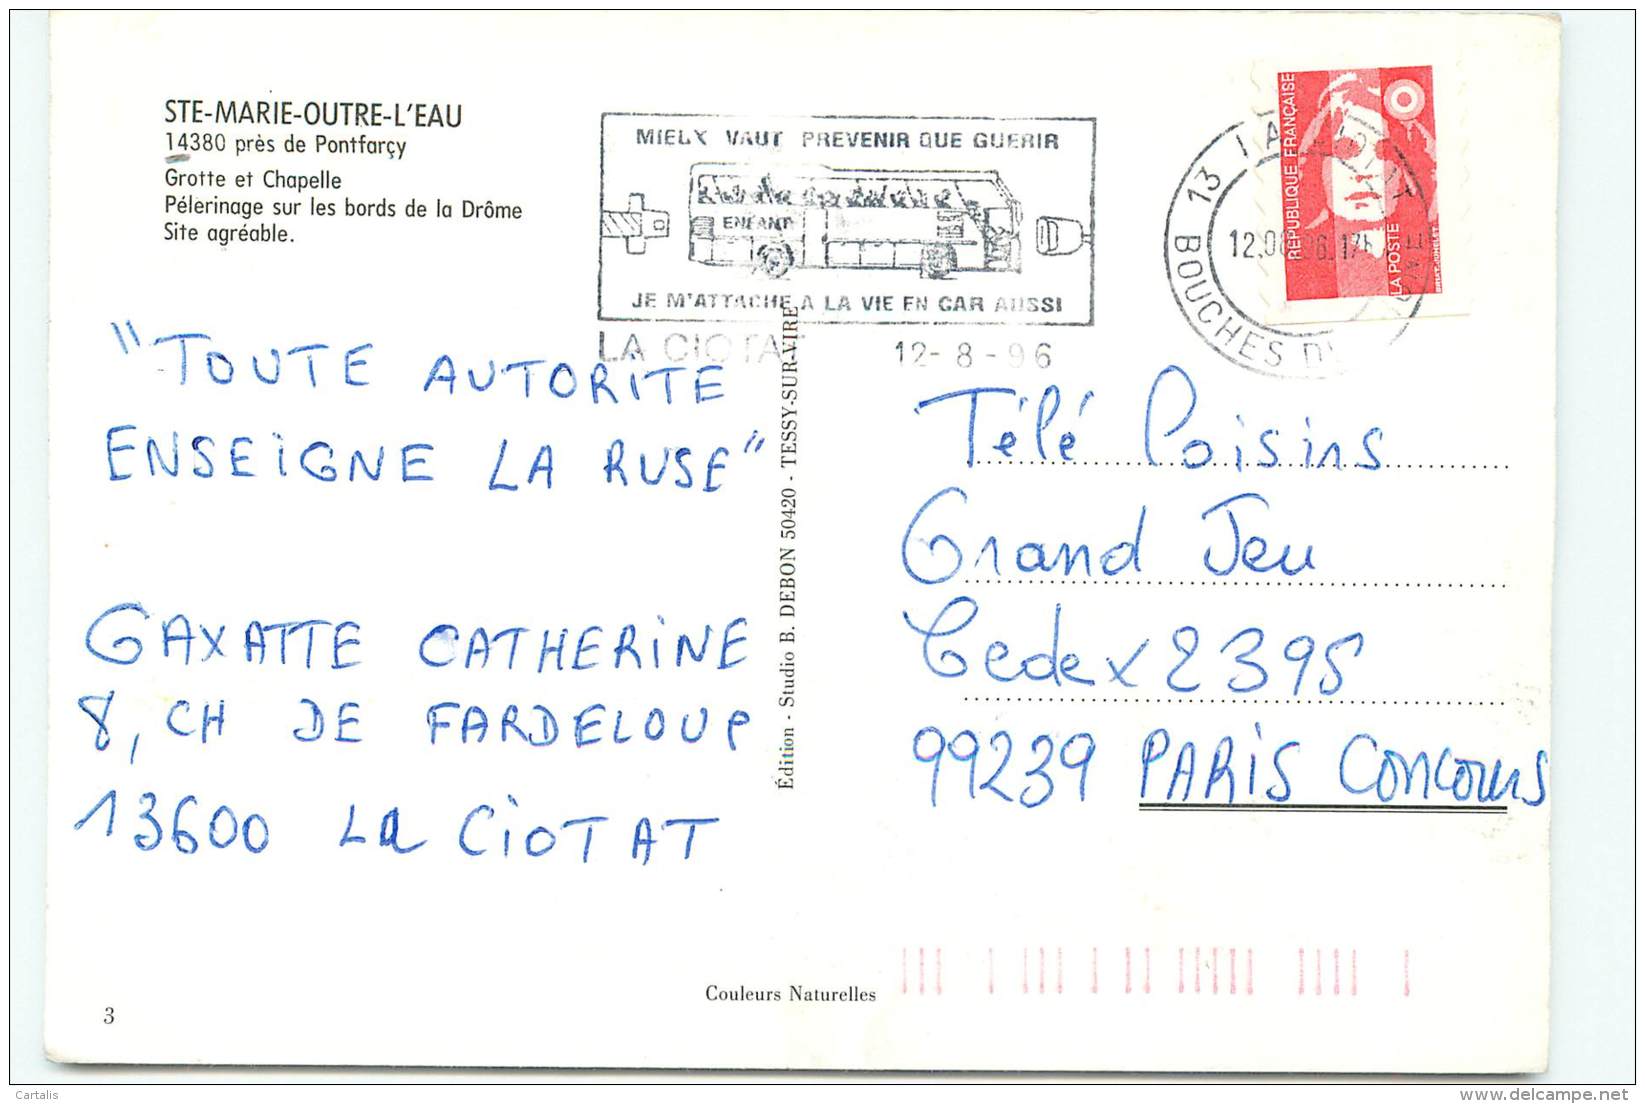 STE-MARIE-OUTRE-L'EAU
14380 près de Pontfarçy
Grotte et Chapelle
Pélerinage sur les bords de la Drôme
Site agréable.
MIEUX VAUT PREVENIR QUE GUERIR
ENFANT
JE M'ATTACHE A LA VIE EN CAR AUSSI
LA CIOTAT 12-8-96
13 LA CIOTAT
BOUCHES DU
RÉPUBLIQUE FRANÇAISE
LA POSTE
"TOUTE AUTORITE
ENSEIGNE LA RUSE"
GAXATTE CATHERINE
8, CH DE FARDELOUP
13600 LA CIOTAT
Édition - Studio B. DEBON 50420 - TESSY-SUR-VIRE
Télé Loisirs
Grand Jeu
Cedex 2395
99239 PARIS CONCOURS
Couleurs Naturelles
3
Cartalis
delcampe.net